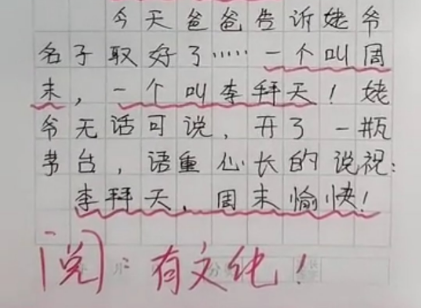 今天爸爸告诉姥爷
名子取好了……一个叫周
末，一个叫李拜天！姥
爷无话可说，开了一瓶
茅台，语重心长的说祝：
李拜天，周末愉快！
阅：有文化！